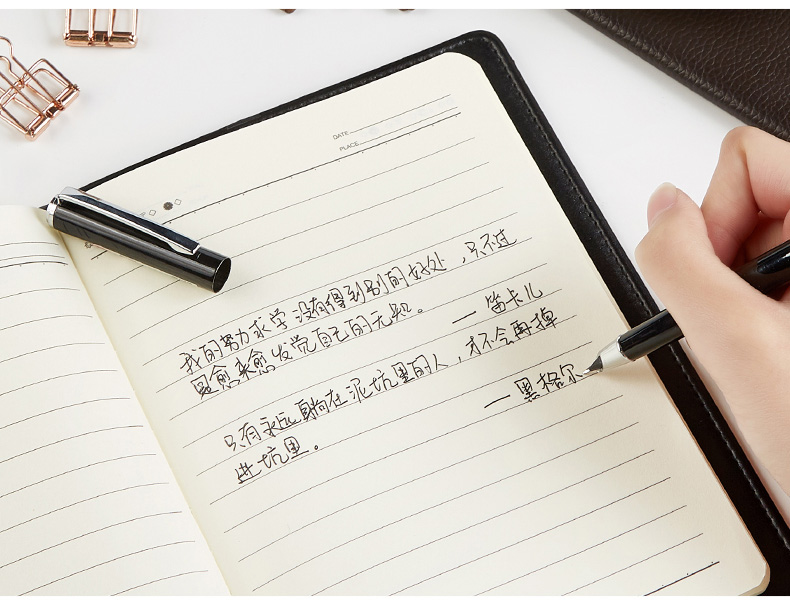 DATE
PLACE
我的努力求学没有得到别的好处，只不过
是愈来愈发觉自己的无知。
— 笛卡儿
只有永远躺在泥坑里的人，才不会再掉
进坑里。
— 黑格尔